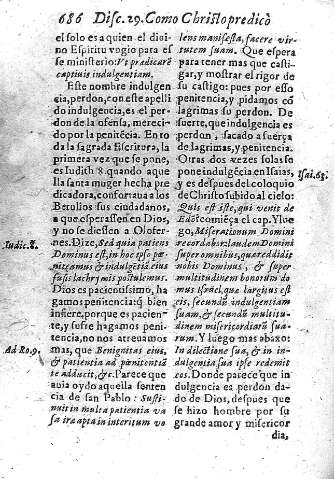 686 Disc. 29. Como Christo predicò
el solo es a quien el divi
no Espiritu vngio para es
se ministerio: Vt predicarẽ
captiuis indulgentiam.
Este nombre indulgen
cia, perdon, con este apelli
do indulgencia, es el per-
don de la ofensa, mereci-
do por la penitẽcia. En to
da la sagrada Escritura, la
primera vez que se pone,
es Iudith 8 quando aque
lla santa muger hecha pre
dicadora, confortaua a los
Betulios sus ciudadanos,
a que esperassen en Dios,
y no se diessen a Olofer-
Iudic. 8.
nes. Dize, Sed quia patiens
Dominus est, in hoc ipso pœ-
nitẽamus & indulgẽtiã eius
fusis lachrymis postulemus.
Dios es pacientissimo, ha
gamos penitencia: q̃ bien
infiere, porque es pacien-
te, y sufre hagamos peni
tencia, no nos atreuamos
Ad Ro. 9.
mas, que Benignitas eius,
& patientia ad pœnitentiã
te adducit, &c. Parece que
auia oydo aquella senten
cia de san Pablo: Susti-
nuit in multa patientia va
sa iræ apta in interitum vo
lens manifesta, facere vir-
tutem suam. Que espera
para tener mas que casti-
gar, y mostrar el rigor de
su castigo: pues por esso
penitencia, y pidamos cõ
lagrimas su perdon. De
suerte, que indulgencia es
perdon, sacado a fuerça
de lagrimas, y penitencia.
Otras dos vezes solas se
pone indulgẽcia en Isaias,
Isai. 63.
y es despues del coloquio
de Christo subido al cielo:
Quis est iste, qui venit de
Edõ comiẽça el cap. Y lue
go, Miserationum Domini
recordabor, laudem Domini
super omnibus, quæ reddidit
nobis Dominus, & super
multitudinem bonorum do
mus Israel, quæ largitus est
eis, secundũ indulgentiam
suam, & secundũ multitu-
dinem misericordiarũ sua-
rum. Y luego mas abaxo:
In dilectione sua, & in in-
dulgentia sua ipse redemit
eos. Donde parece que in
dulgencia es perdon da-
do de Dios, despues que
se hizo hombre por su
grande amor y misericor
dia,